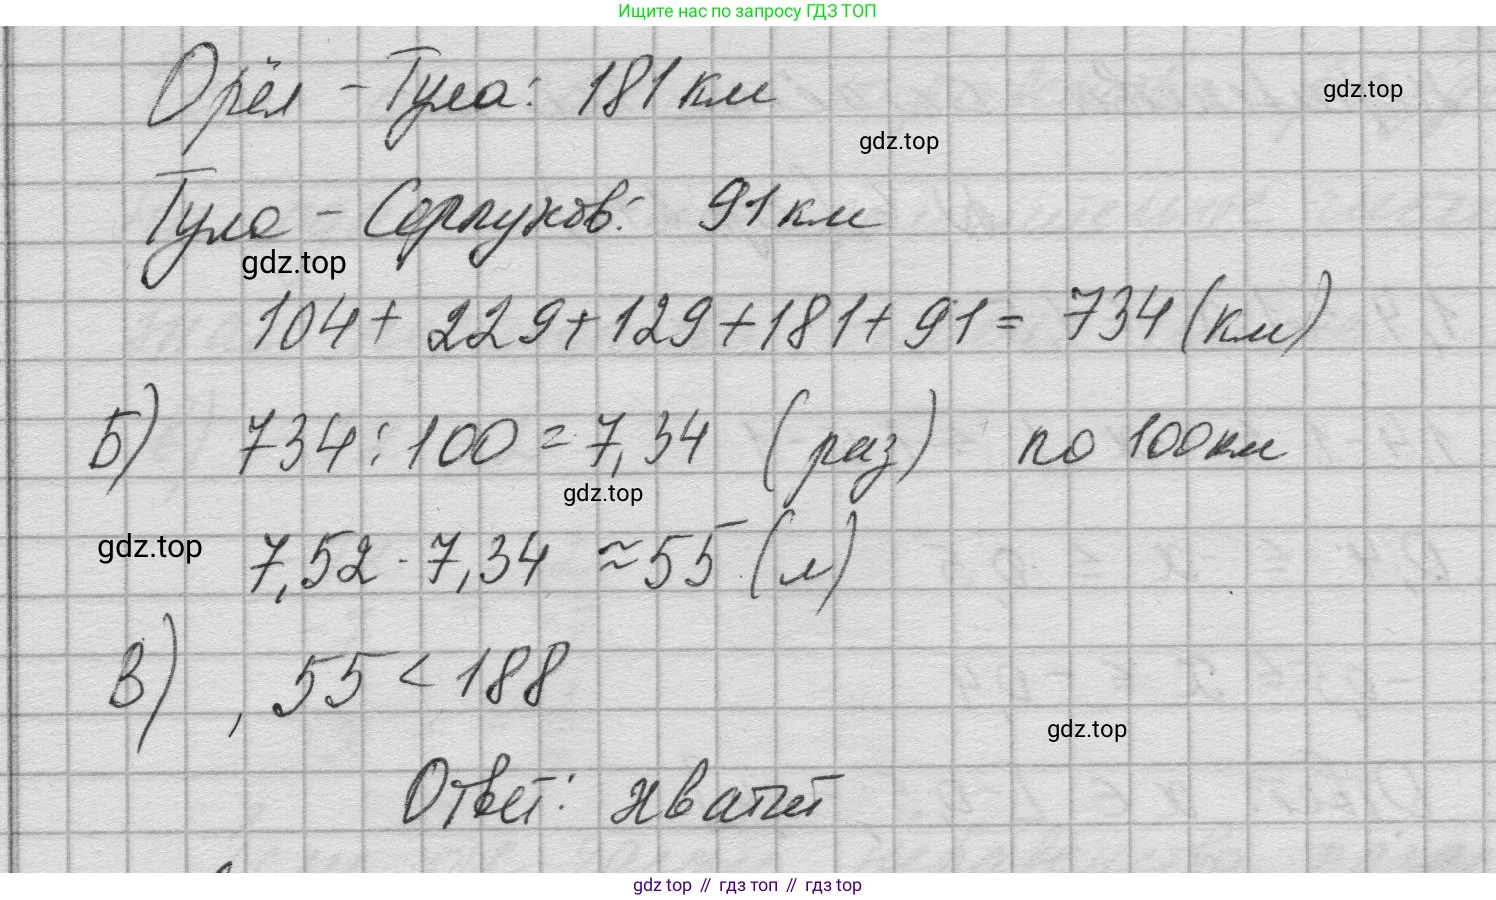 Ищите нас по запросу ГДЗ ТОП
Орёл - Тула: 181 км
gdz.top
gdz.top
Тула - Серпухов: 91 км
gdz.top
104 + 229 + 129 + 181 + 91 = 734 (км)
Б) 734 : 100 = 7,34 (раз) по 100 км
gdz.top
gdz.top
7,52 · 7,34 ≈ 55 (л)
В) , 55 < 188
gdz.top
Ответ: хватит
gdz top // гдз топ // гдз top